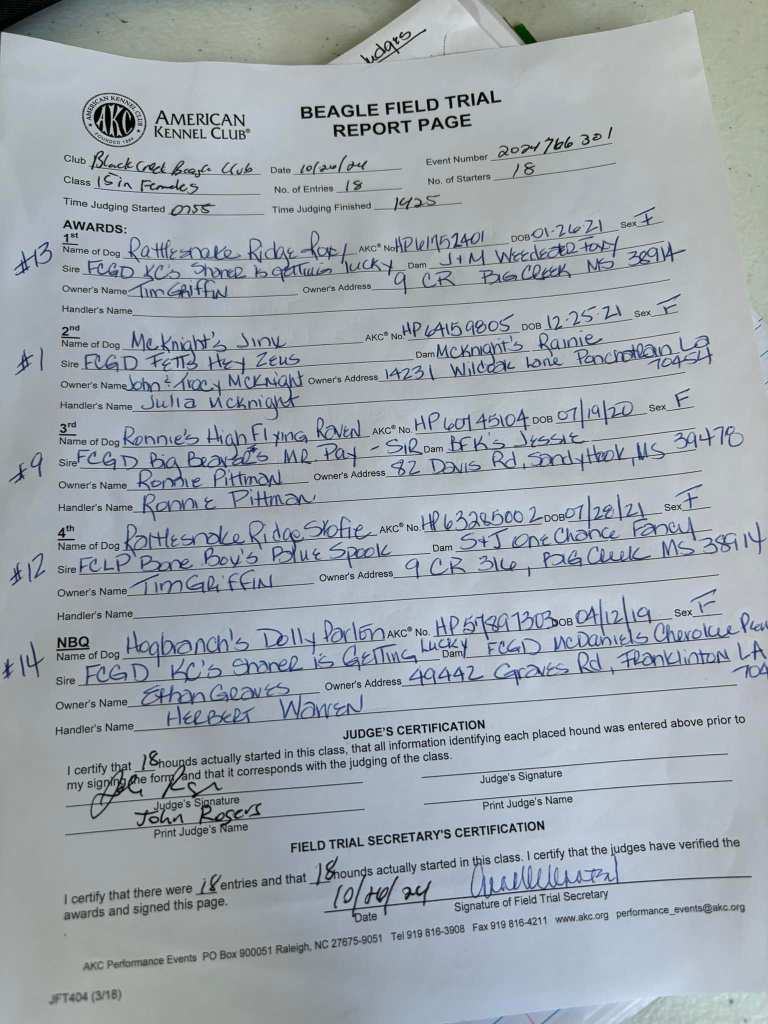 Judges
AMERICAN KENNEL CLUB
AKC
FOUNDED 1884
AMERICAN
KENNEL CLUB®
BEAGLE FIELD TRIAL
REPORT PAGE
Club Black Creek Beagle Club Date 10/26/24 Event Number 2024766301
Class 15in Females No. of Entries 18 No. of Starters 18
Time Judging Started 0755 Time Judging Finished 1425
AWARDS:
1st
#13 Name of Dog Rattlesnake Ridge AKC® No. HP61752401 DOB 01-26-21 Sex F
Sire FCGD KC's Shaner is getting lucky Dam J+M
Owner's Name Tim Griffin Owner's Address 9 CR Big Creek MS 38914
Handler's Name
2nd
#1 Name of Dog McKnight's Jinx AKC® No. HP64159805 DOB 12-25-21 Sex F
Sire FCGD Fett's Hey Zeus Dam McKnight's Rainie
Owner's Name John & Tracy McKnight Owner's Address 14231 Lane La 70454
Handler's Name Julia McKnight
3rd
#9 Name of Dog Ronnie's High Flying Raven AKC® No. HP60745104 DOB 07/19/20 Sex F
Sire FCGD Big Beaver's MR Pay-SIR Dam BFK's Jessie
Owner's Name Ronnie Pittman Owner's Address 82 Davis Rd, Sandy Hook, MS 39478
Handler's Name Ronnie Pittman
4th
#12 Name of Dog Rattlesnake Ridge AKC® No. HP63285002 DOB 07/28/21 Sex F
Sire FCLP Bone Boy's Blue Spook Dam S+J One Chance Fancy
Owner's Name Tim Griffin Owner's Address 9 CR 316, Big Creek MS 38914
Handler's Name
NBQ
#14 Name of Dog Hogbranch's Dolly Parton AKC® No. HP57897303 DOB 04/12/19 Sex F
Sire FCGD KC's Shaner is Getting Lucky Dam FCGD McDaniels Cherokee
Owner's Name Ethan Graves Owner's Address 49442 Graves Rd, Franklinton LA 704
Handler's Name Herbert Warren
JUDGE'S CERTIFICATION
I certify that 18 hounds actually started in this class, that all information identifying each placed hound was entered above prior to
my signing the form and that it corresponds with the judging of the class.
Judge's Signature Judge's Signature
John Rogers
Print Judge's Name Print Judge's Name
FIELD TRIAL SECRETARY'S CERTIFICATION
I certify that there were 18 entries and that 18 hounds actually started in this class. I certify that the judges have verified the
awards and signed this page.
10/26/24
Date Signature of Field Trial Secretary
AKC Performance Events PO Box 900051 Raleigh, NC 27675-9051 Tel 919 816-3908 Fax 919 816-4211 www.akc.org performance_events@akc.org
JFT404 (3/18)